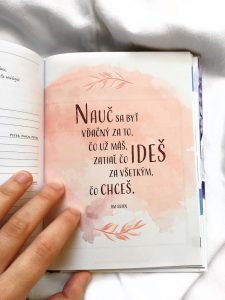 NAUČ SA BYŤ
VĎAČNÝ ZA TO,
ČO UŽ MÁŠ,
ZATIAĽ ČO IDEŠ
ZA VŠETKÝM,
ČO CHCEŠ.
JIM ROHN